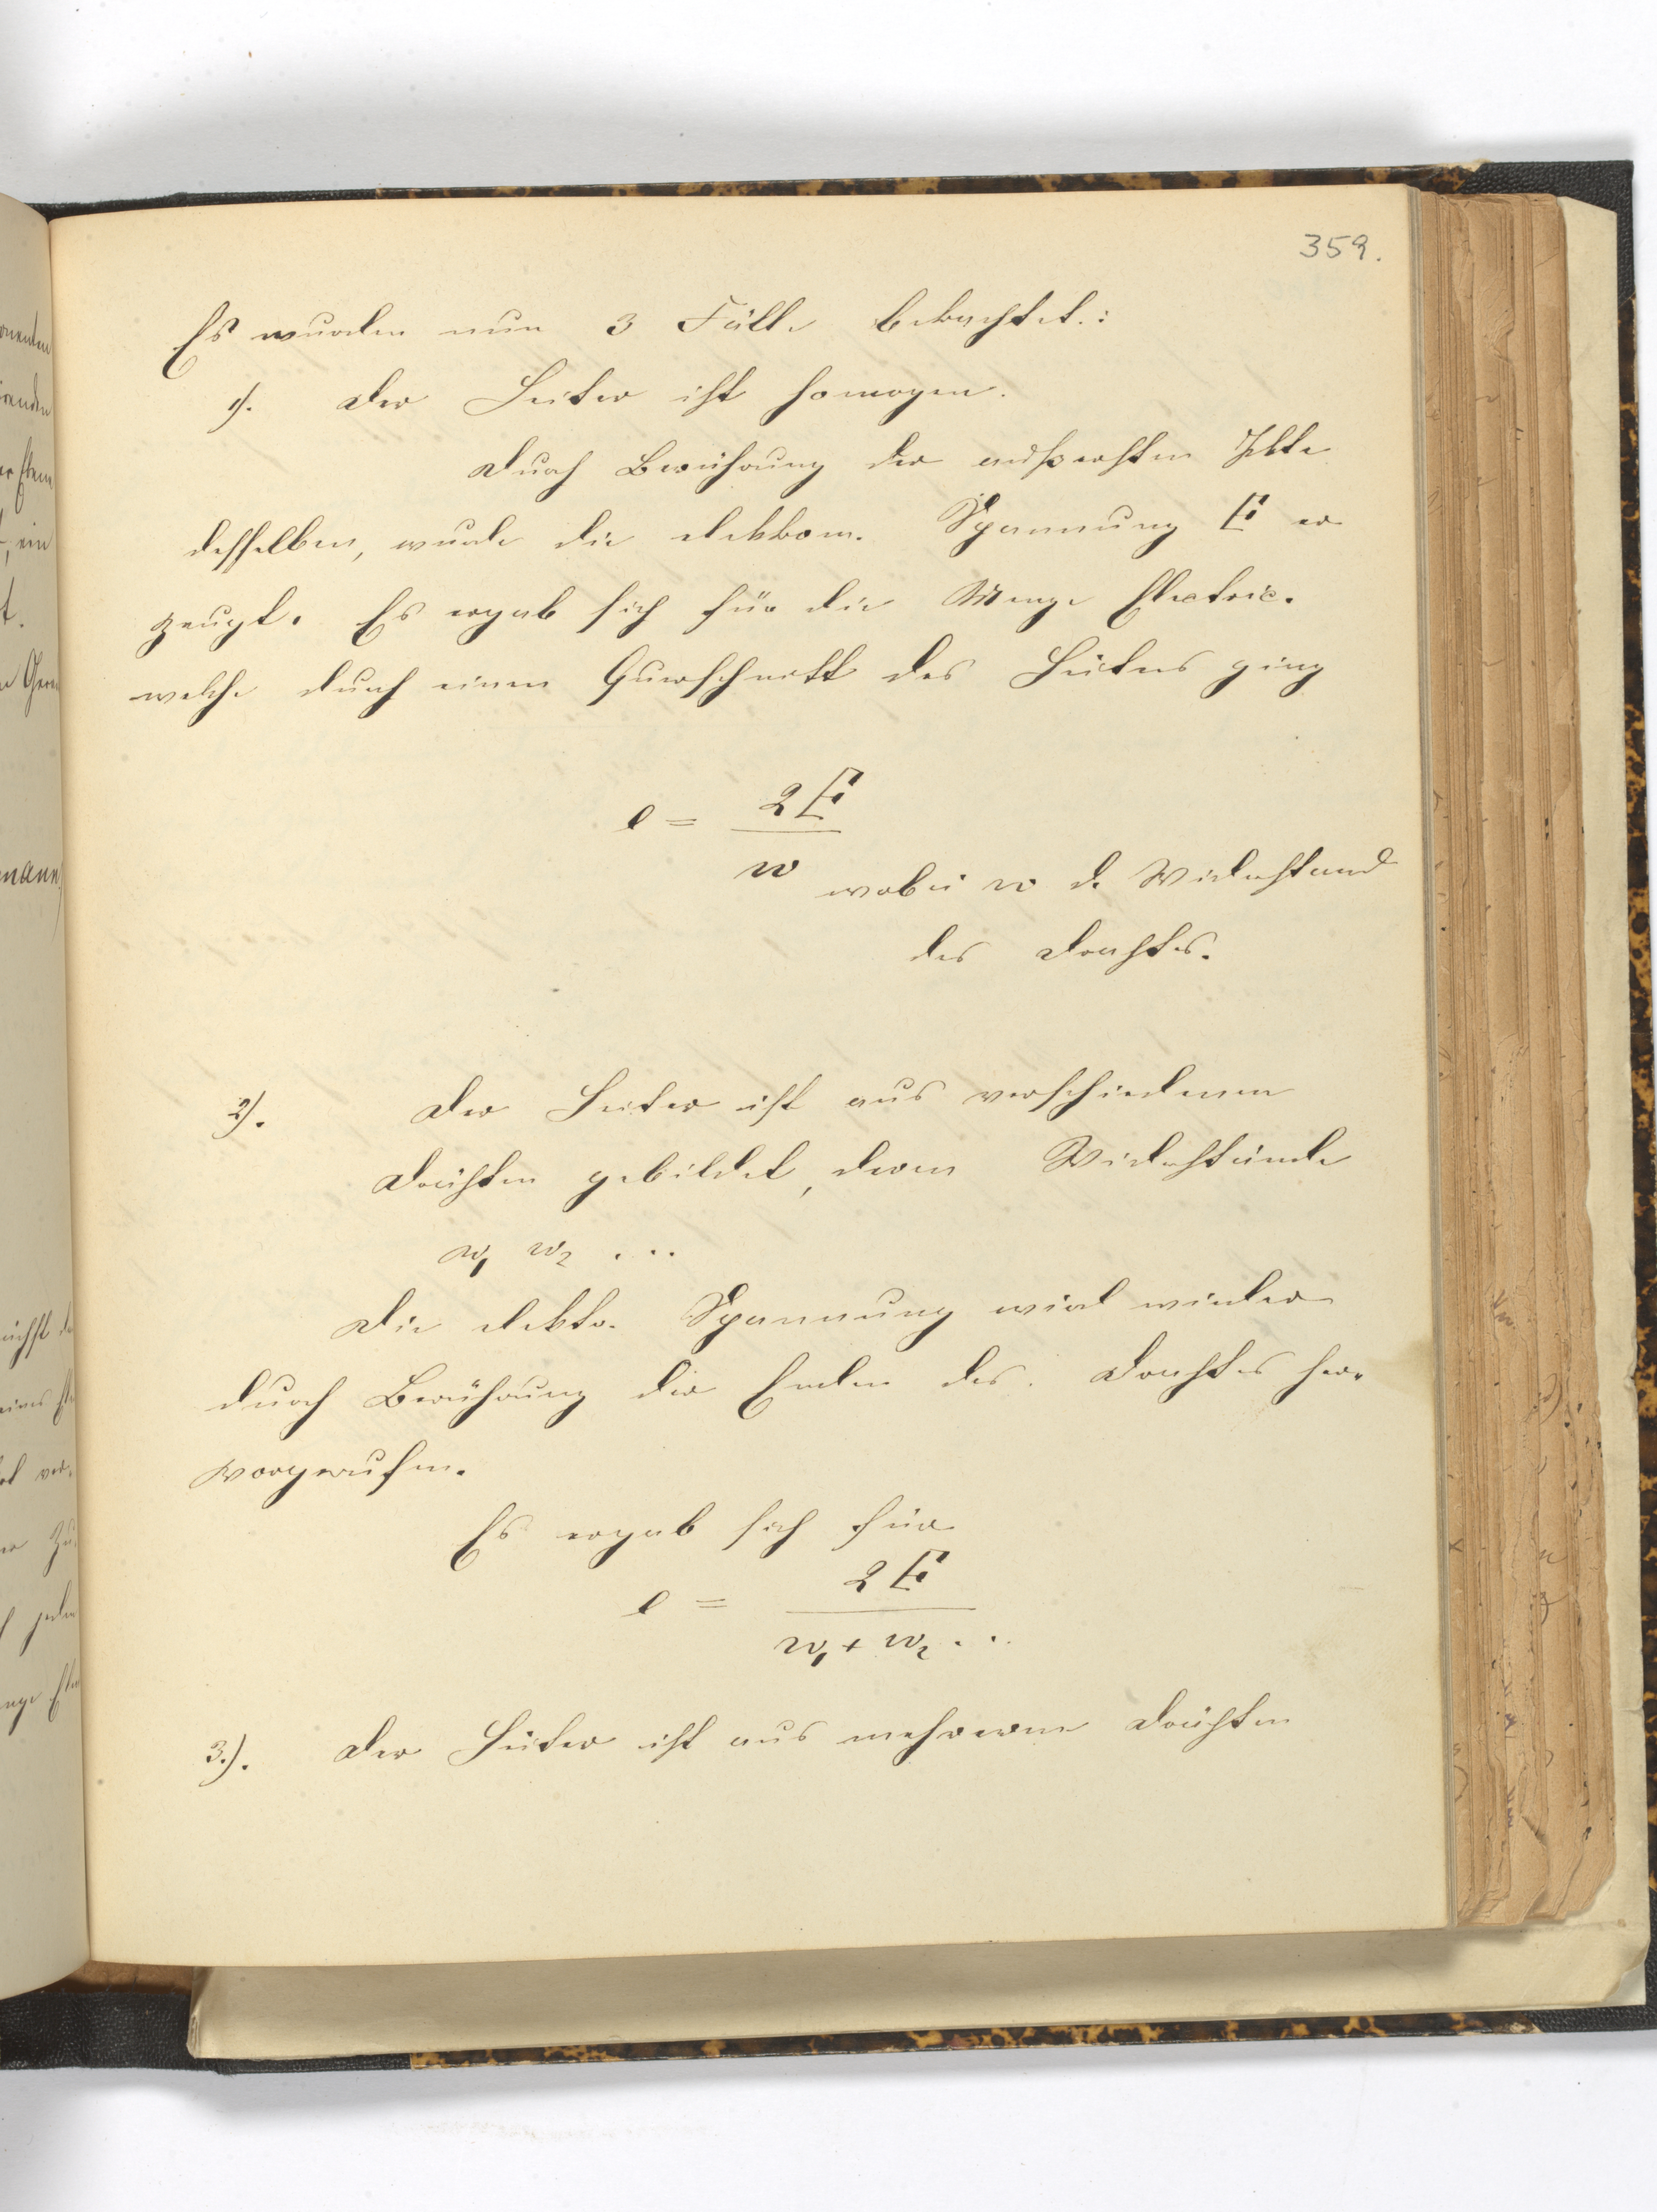 359.
Es wurden nun 3 Fälle betrachtet.:
1). Der Leiter ist homogen.
Durch Berührung der äußersten
desselben, wurde die elektrom. Spannung E er
zeugt. Es ergab sich für die Menge Electric.
welche durch einen Querschnitt des Leiters ging
e = 2E
w wobei w d. Widerstand
des Drahtes.
2). Der Leiter ist aus verschiedenen
Drähten gebildet, deren Widerstände
w1 w2 ...
Die elektr. Spannung wird wieder
durch Berührung der Enden des Drahtes her-
vorgerufen.
Es ergab sich für
e = 2E
w1 + w2 ...
3.). Der Leiter ist aus mehreren Drähten